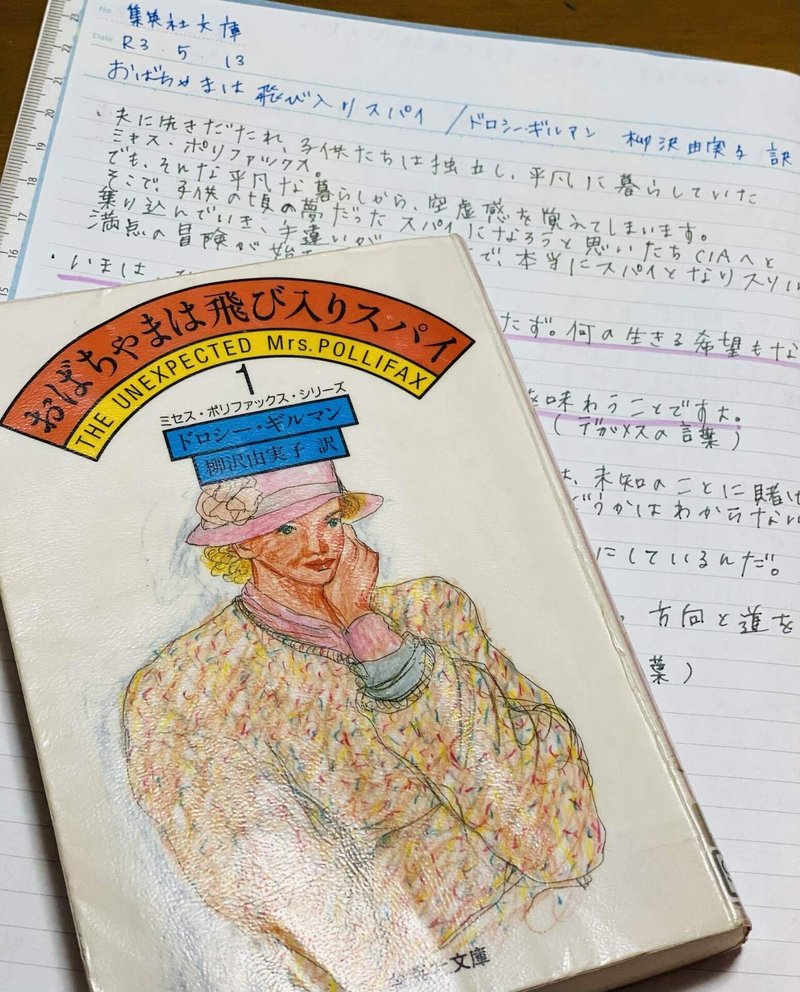 集英社文庫
R3.5.13
おばちゃまは飛び入りスパイ/ドロシーギルマン 柳沢由実子 訳
・夫に先きだたれ、子供たちは独立し、平凡に暮らしていた
ミャス・ポリファックス。
でも、そんな平凡な暮らしから、空虚感を覚えてしまいます。
そこで、子供の頃の夢だったスパイになろうと思いたちCIAへと
乗り込んでいき、手違いが
で、本当にスパイとなりスリル
満点の冒険が始
・いまは、
たず。何の生きる希望もな
味わうことですよ。
(デガメスの言葉)
は、未知のことに賭け
どうかはわからない
にしているんだ。
、方向と道を
葉)
おばちゃまは飛び入りスパイ
THE UNEXPECTED Mrs. POLLIFAX
1
ミセス・ポリファックス・シリーズ
ドロシー・ギルマン
柳沢由実子 訳
文庫
No.
Date
23
22
21
20
19
18
17
16
15